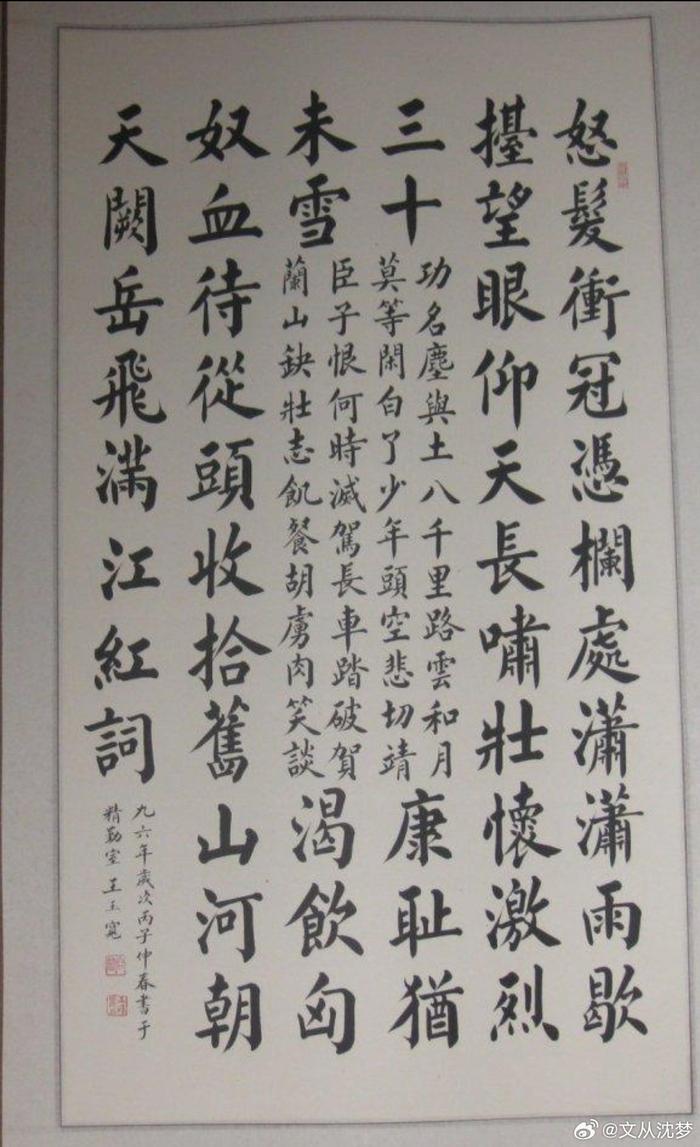 怒髮衝冠憑欄處瀟瀟雨歇
擡望眼仰天長嘯壯懷激烈
三十
功名塵與土八千里路雲和月
莫等閑白了少年頭空悲切靖
康耻猶
未雪
臣子恨何時滅駕長車踏破賀
蘭山缺壯志飢餐胡虜肉笑談
渴飲匈
奴血待從頭收拾舊山河朝
天闕岳飛滿江紅詞
九六年歲次丙子仲春書于
精勤室王玉寬
@文从沈梦